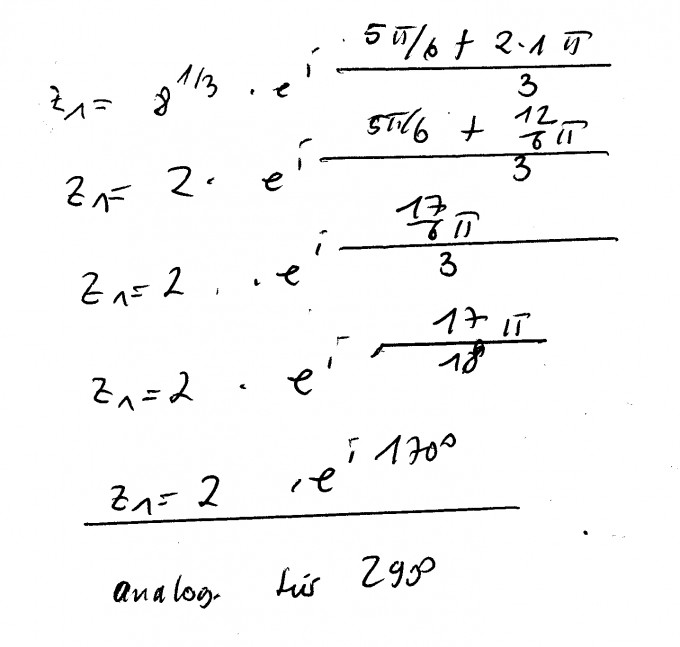 z₁ = 8^{1/3} · e^{i (5π/6 + 2·1π)/3}
z₁ = 2 · e^{i (5π/6 + 12/6 π)/3}
z₁ = 2 · e^{i (17/6 π)/3}
z₁ = 2 · e^{i 17π/18}
z₁ = 2 · e^{i 170°}
analog. für 290°